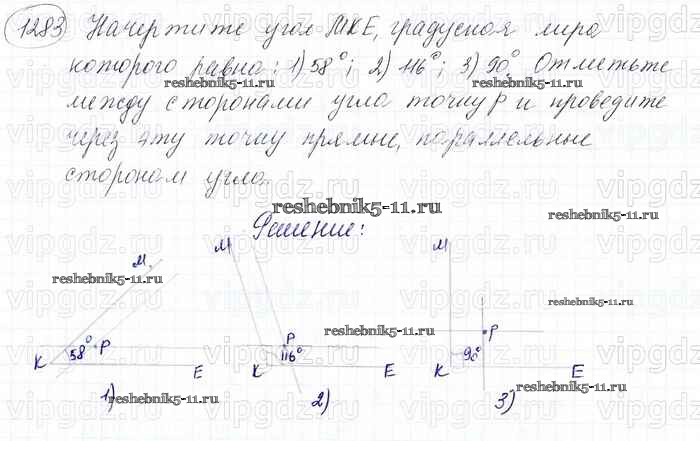 1283 Начертите угол МКЕ, градусная мера
которого равна: 1) 58°; 2) 116°; 3) 90° Отметьте
reshebnik5-11.ru
между сторонами угла точку Р и проведите
через эту точку прямые, параллельные
сторонам угла.
reshebnik5-11.ru
reshebnik5-11.ru
Решение:
М М М
reshebnik5-11.ru
reshebnik5-11.ru
reshebnik5-11.ru
58° Р Р 116° Р 90°
К Е К Е К Е
reshebnik5-11.ru
reshebnik5-11.ru
1) 2) 3)
vipgdz.ru